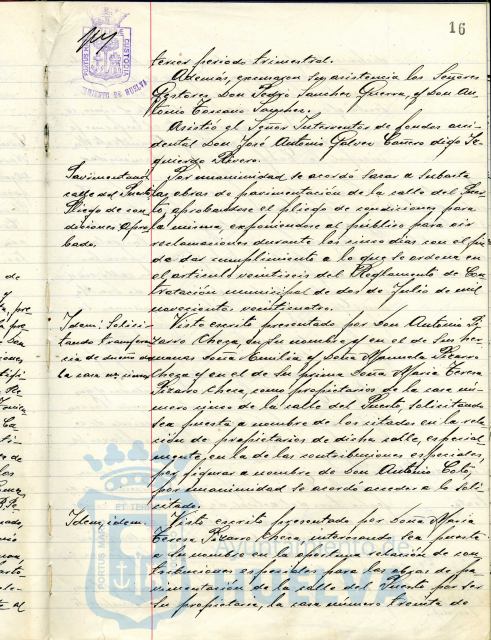 16
tercer período trimestral.
Además, excusaron su asistencia los Señores
Gestores Don Pedro Sanchez Guerra, y Don An-
tonio Toscano Sanchez.
Asistió el Señor Interventor de fondos acci-
dental Don José Antonio Galvez Canero digo Se-
Rivero.
Pavimentación
calle del Puerto
Pliego de con-
diciones apro-
bado.
Por unanimidad se acordó sacar a subasta
las obras de pavimentación de la calle del Puer-
to, aprobandose el pliego de condiciones para
la misma, exponiendose al público para oir
reclamaciones durante los cinco dias con el fin
de dar cumplimiento a lo que se ordena en
el articulo veintiseis del Reglamento de Con-
tratación municipal de dos de Julio de mil
novecientos veinticuatro.
Idem: Solici-
tando transfera
cia de dueño de
la casa nº cinco
Visto escrito presentado por Don Antonio Pi-
zarro Cheza, en su nombre y en el de sus her-
manas Doña Emilia y Doña Manuela Pizarro
Cheza y en el de su prima Doña Maria Teresa
Pizarro Cheza, como propietarios de la casa nú-
mero cinco de la calle del Puerto, solicitando
sea puesta a nombre de los citados en la rela-
ción de propietarios de dicha calle, especial
mente, en la de las contribuciones especiales,
por figurar a nombre de Don Antonio
por unanimidad se acordó acceder a lo soli-
citado.
Idem, idem.
Visto escrito presentado por Doña Maria
Teresa Pizarro Cheza interesando sea puesta
a su nombre en la relación de con-
tribuciones especiales para las obras de pa-
vimentación de la calle del Puerto por ser
su propietaria, la casa número treinta de
PORTUS
CUSTODIA
HUELVA
Ayuntamiento de
HUELVA